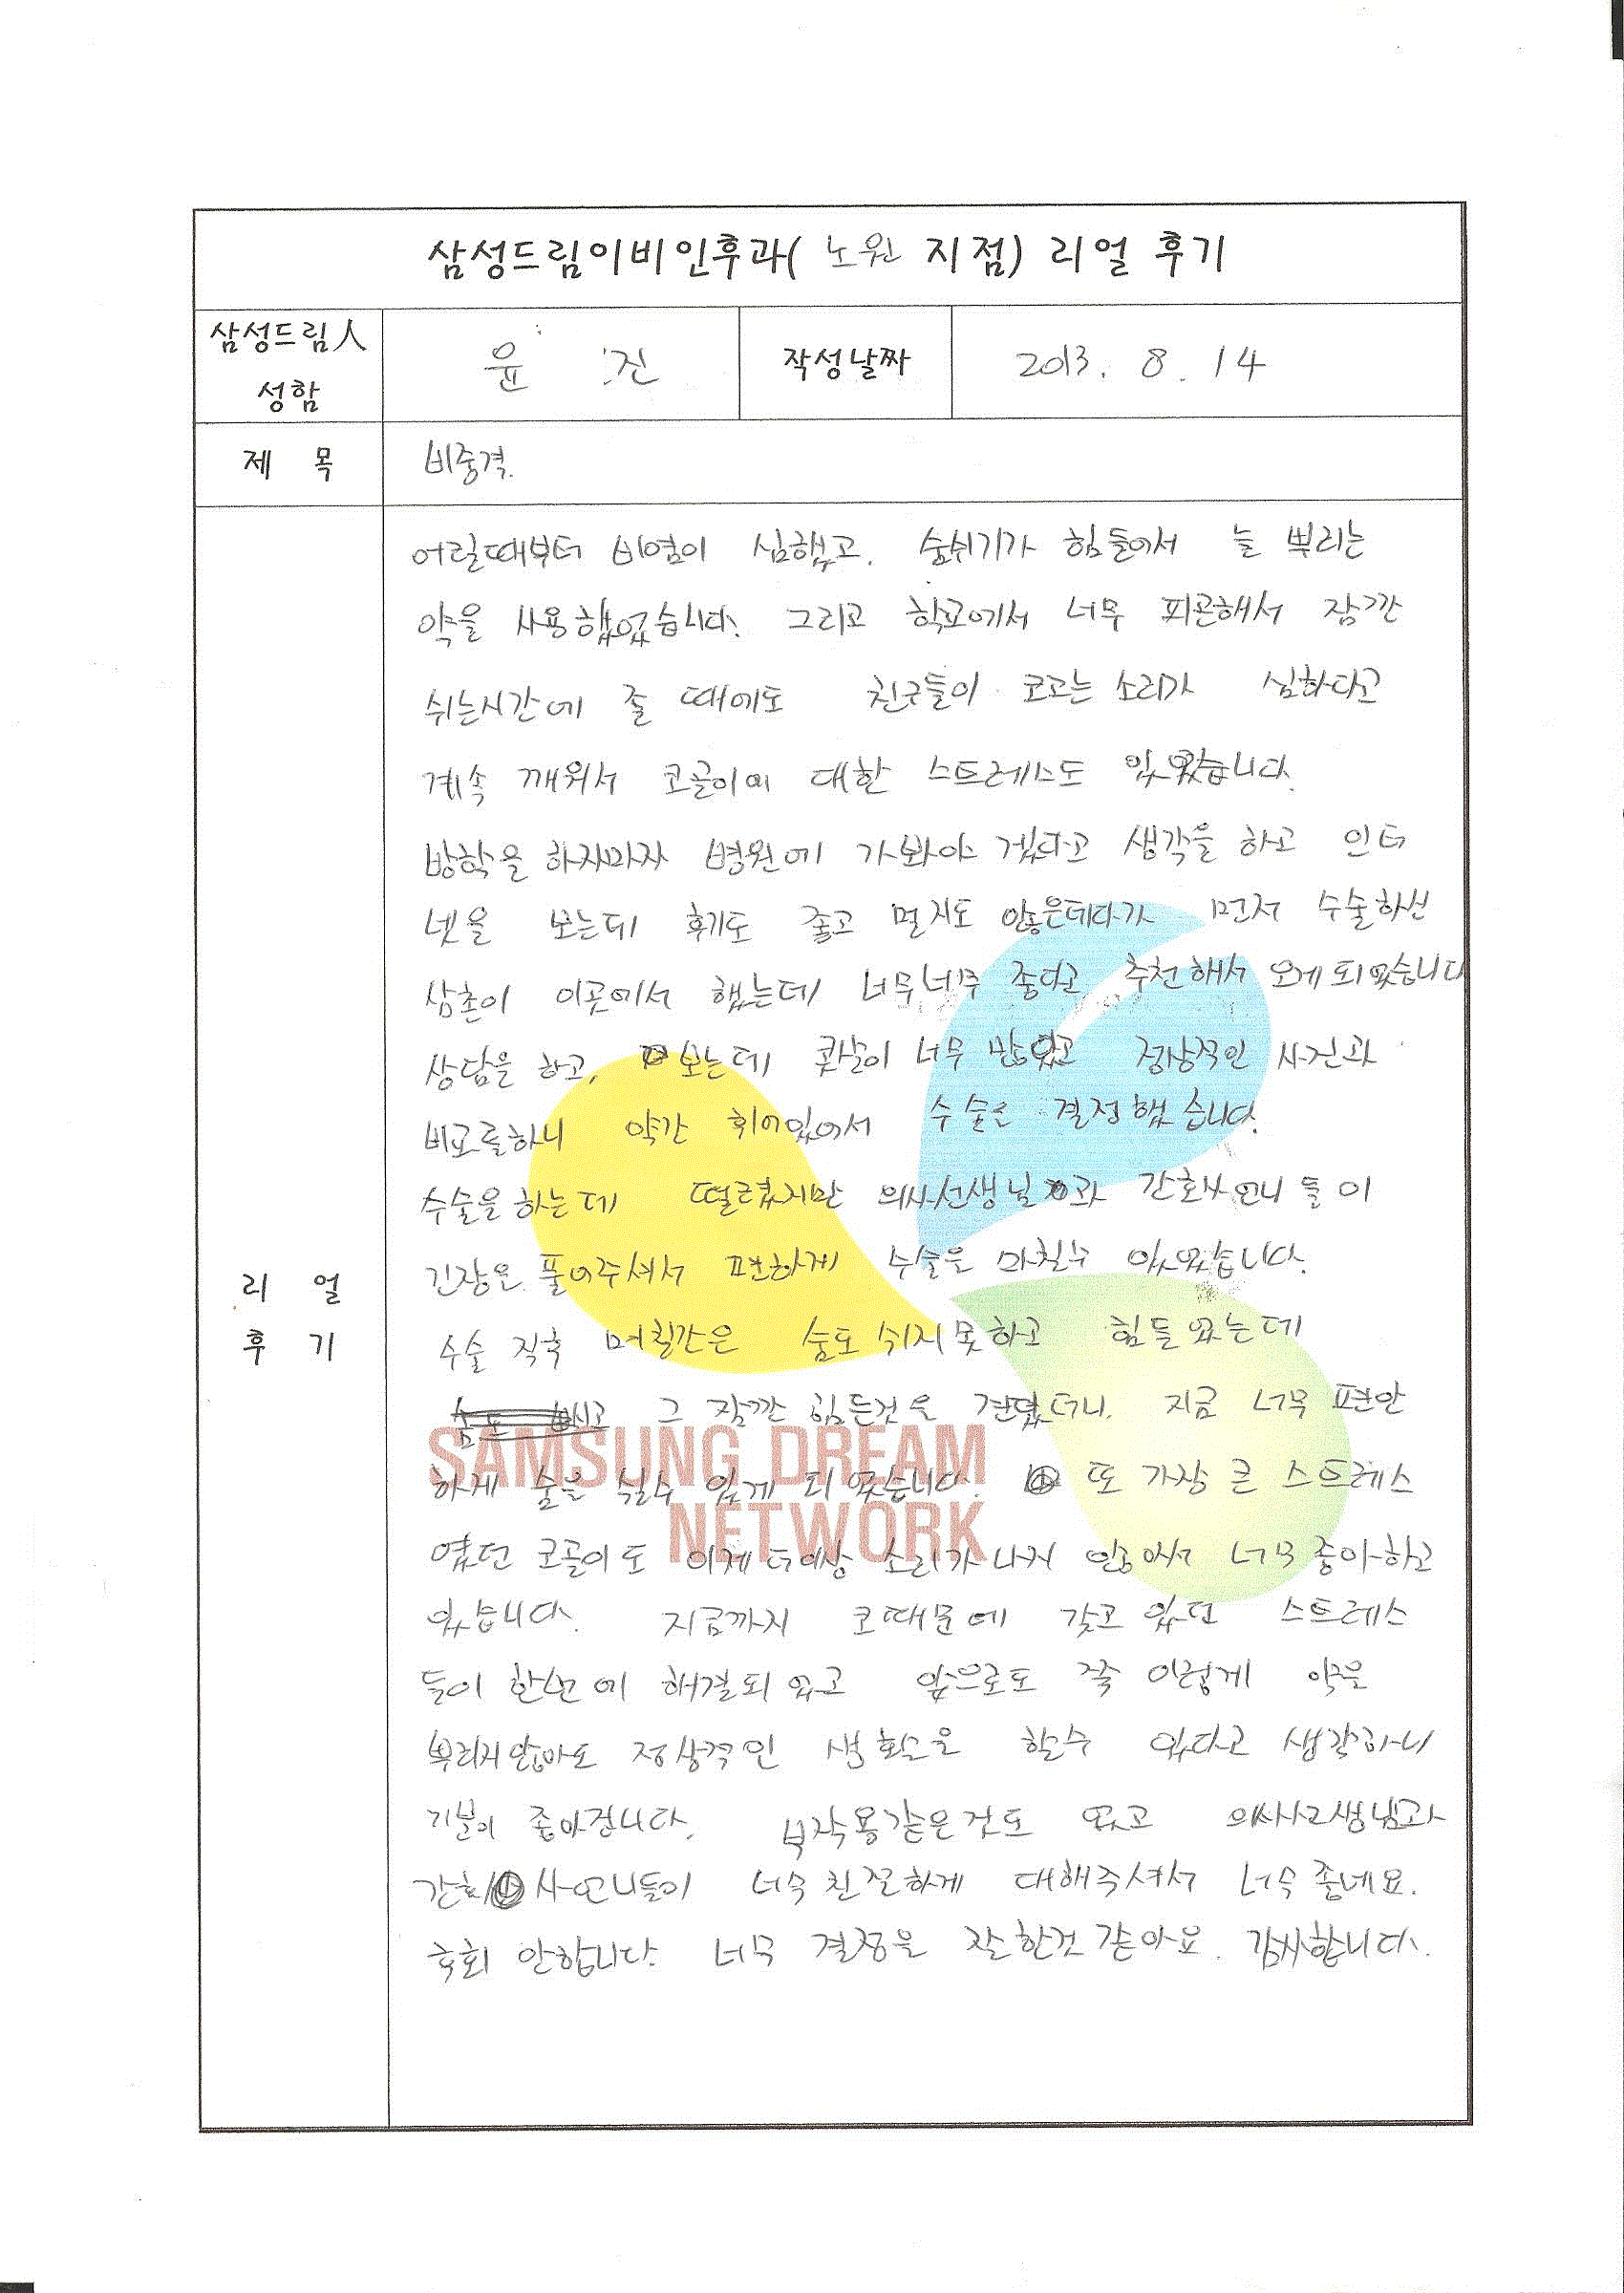 삼성드림이비인후과( 노원 지점) 리얼 후기
삼성드림人 성함
윤 진
작성날짜
2013. 8. 14
제 목
비중격.
리 얼 후 기
어릴때부터 비염이 심했고. 숨쉬기가 힘들어서 늘 뿌리는
약을 사용했었습니다. 그리고 학교에서 너무 피곤해서 잠깐
쉬는시간에 잘 때에도 친구들이 코고는 소리가 심하다고
계속 깨워서 코골이에 대한 스트레스도 있었습니다.
방학을 하자마자 병원에 가봐야 겠다고 생각을 하고 인터
넷을 보는데 후기도 좋고 멀지도 않은데다가 먼저 수술하신
삼촌이 이곳에서 했는데 너무너무 좋다고 추천해서 오게되었습니다
상담을 하고, 보는데 콧살이 너무 많았고 정상적인 사진과
비교를하니 약간 휘어있어서 수술을 결정했습니다.
수술을 하는데 떨렸지만 의사선생님과 간호사 언니들이
긴장을 풀어주셔서 편하게 수술을 마칠수 있었습니다.
수술 직후 며칠간은 숨도 쉬지못하고 힘들었는데
그 잠깐 힘든것을 견뎠더니. 지금 너무 편안
하게 숨을 쉴수 있게 되었습니다. 또 가장 큰 스트레스
였던 코골이도 이제 더이상 소리가 나지 않아서 너무 좋아하고
있습니다. 지금까지 코때문에 갖고 있던 스트레스
들이 한번에 해결되었고 앞으로도 쭉 이렇게 약을
뿌리지않아도 정상적인 생활을 할수 있다고 생각하니
기분이 좋아집니다. 부작용같은것도 없고 의사선생님과
간호사언니들이 너무 친절하게 대해주셔서 너무 좋네요.
후회 안합니다. 너무 결정을 잘한것 같아요. 감사합니다.
SAMSUNG DREAM
NETWORK